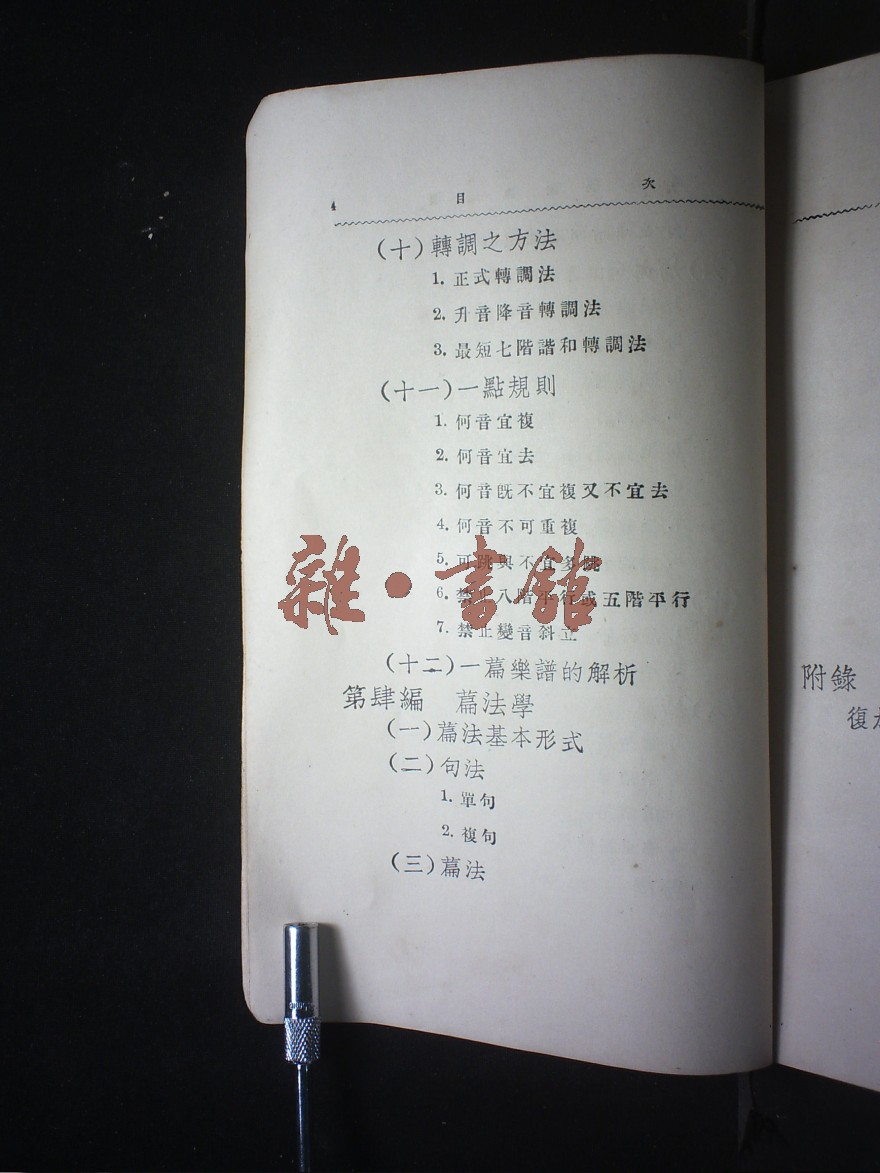 4 目 次
(十)轉調之方法
1. 正式轉調法
2. 升音降音轉調法
3. 最短七階諧和轉調法
(十一)一點規則
1. 何音宜複
2. 何音宜去
3. 何音旣不宜複又不宜去
4. 何音不可重複
5. 可跳與不宜多跳
6. 禁止八階平行或五階平行
7. 禁止變音斜立
(十二)一篇樂譜的解析
第肆編 篇法學
(一)篇法基本形式
(二)句法
1. 單句
2. 複句
(三)篇法
雜·書館
附錄
復